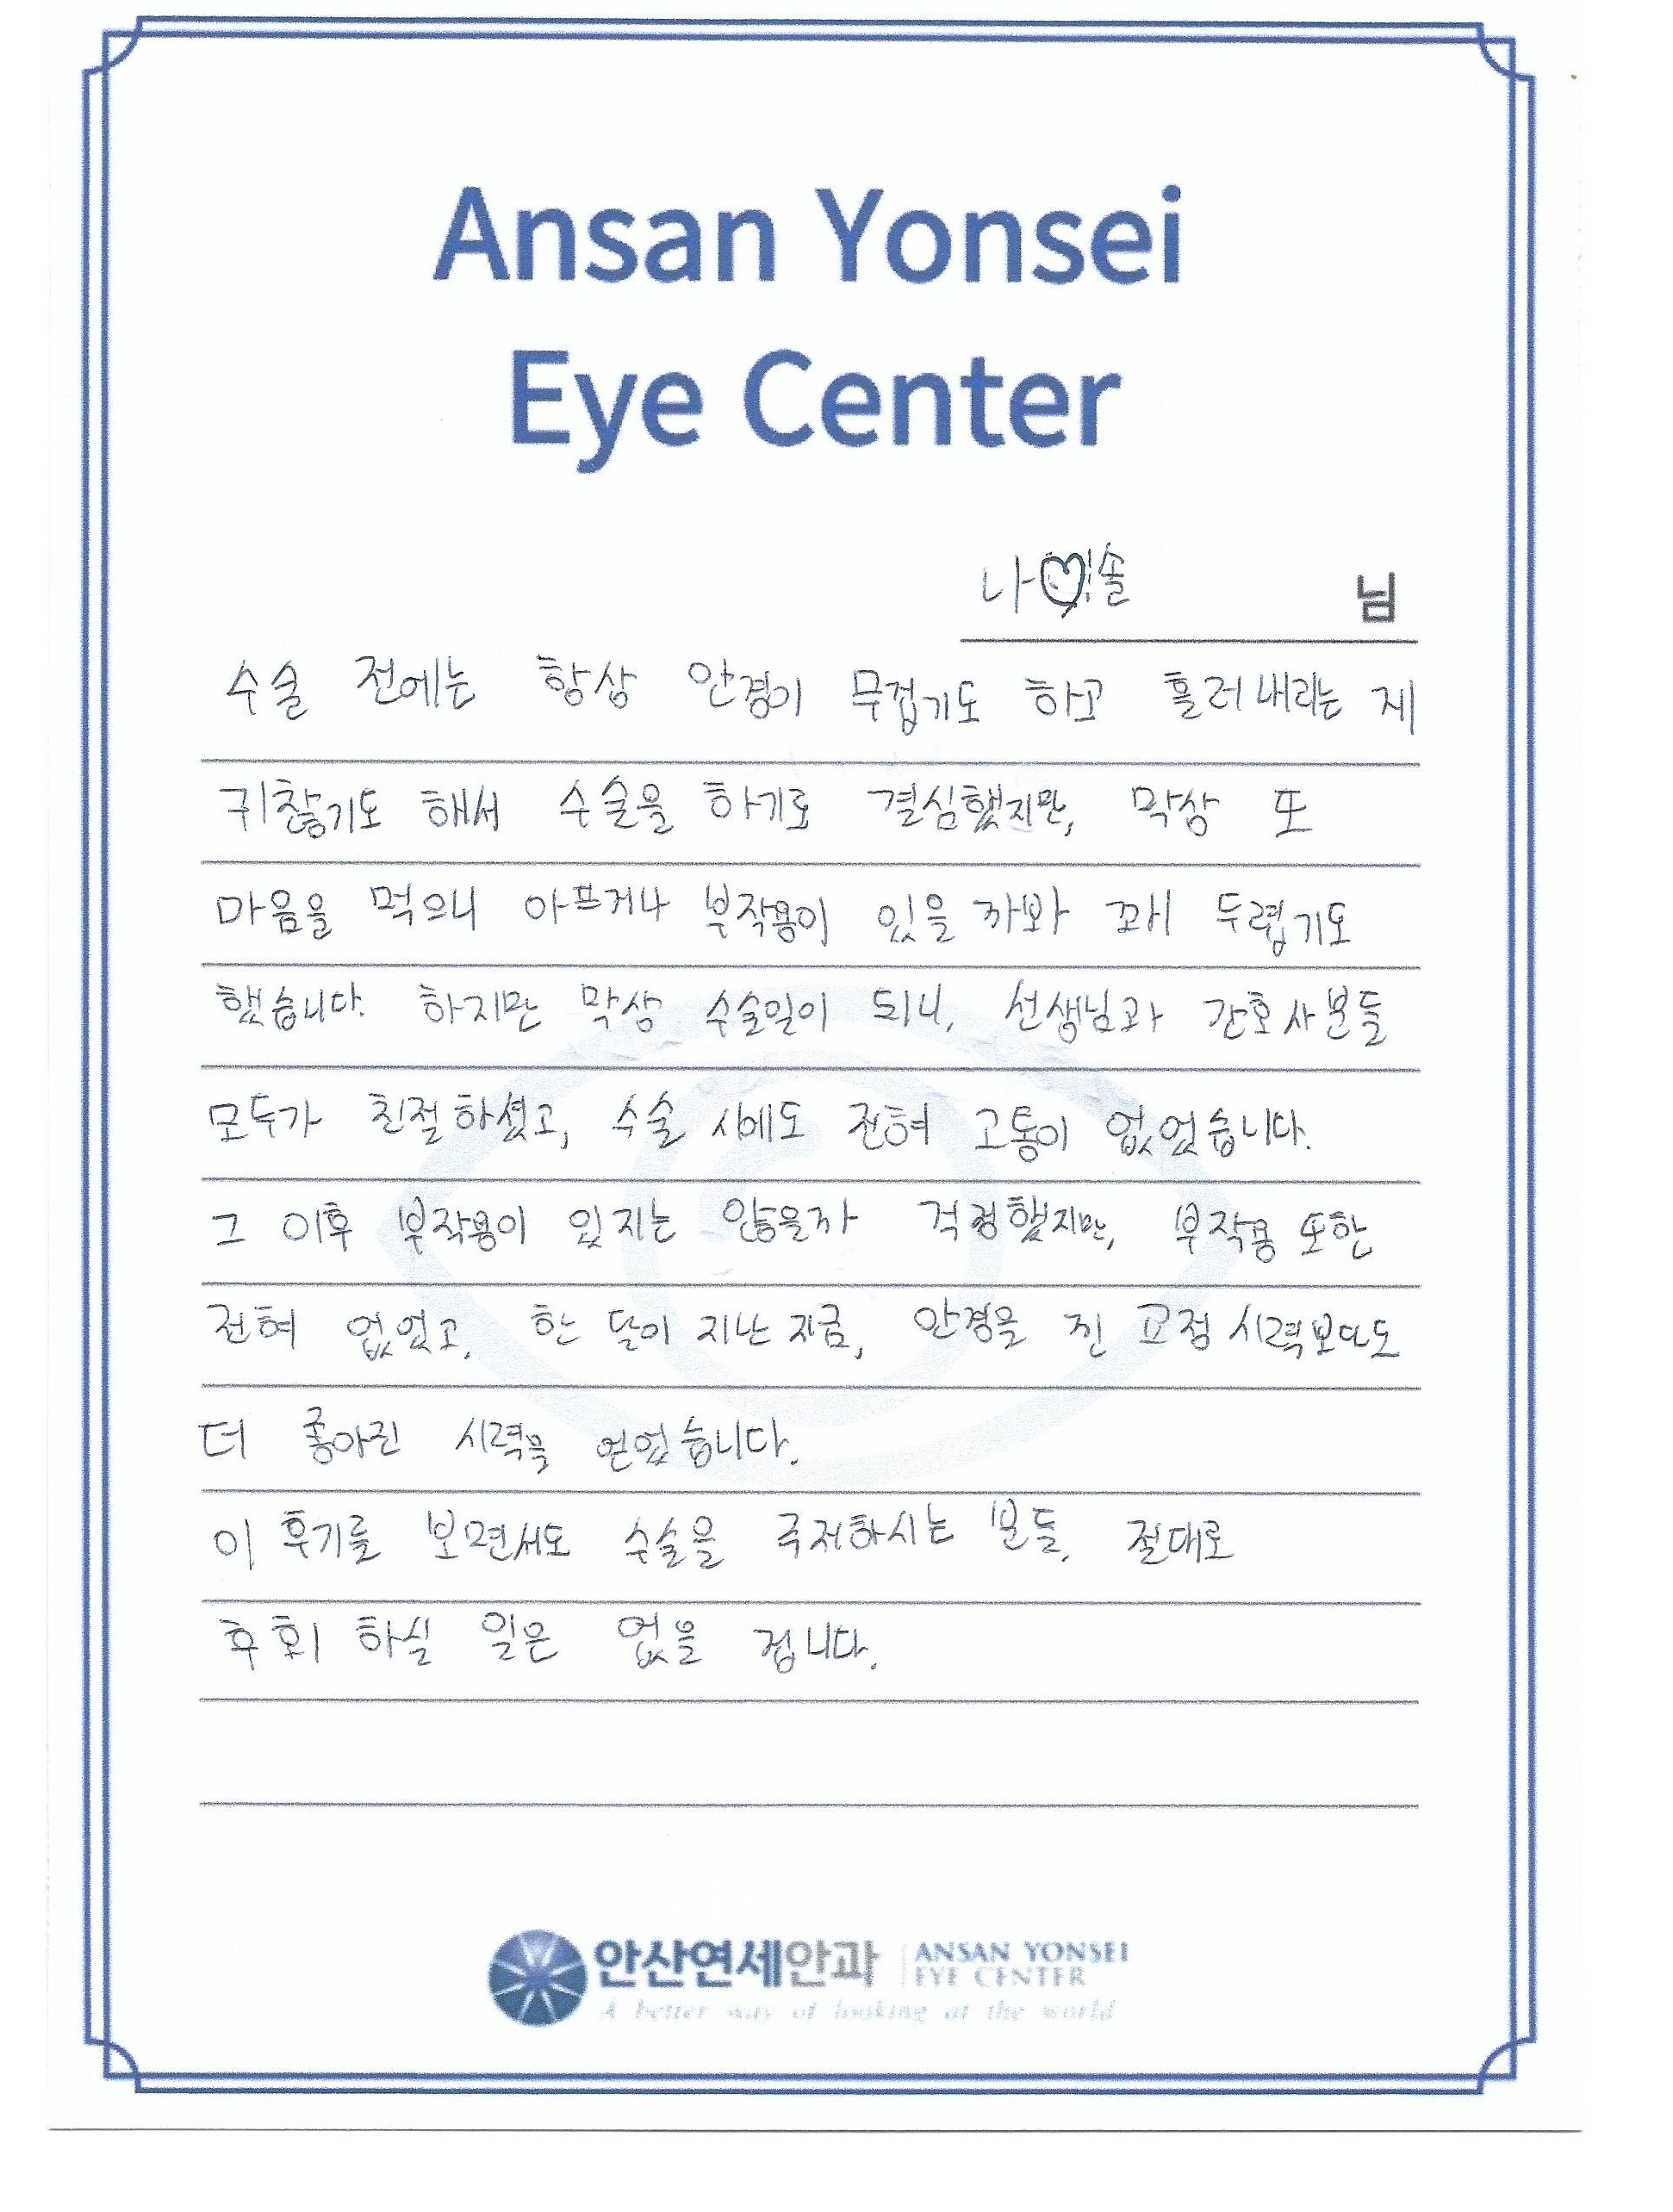 Ansan Yonsei
Eye Center
나♡솔 님
수술 전에는 항상 안경이 무겁기도 하고 흘러내리는 게
귀찮기도 해서 수술을 하기로 결심했지만, 막상 또
마음을 먹으니 아프거나 부작용이 있을 까봐 꽤 두렵기도
했습니다. 하지만 막상 수술일이 되니, 선생님과 간호사분들
모두가 친절하셨고, 수술 시에도 전혀 고통이 없었습니다.
그 이후 부작용이 있지는 않을까 걱정했지만, 부작용 또한
전혀 없었고, 한 달이 지난 지금, 안경을 낀 교정시력보다도
더 좋아진 시력을 얻었습니다.
이 후기를 보면서도 수술을 주저하시는 분들, 절대로
후회 하실 일은 없을 겁니다.
안산연세안과 ANSAN YONSEI
EYE CENTER
A better way of looking at the world